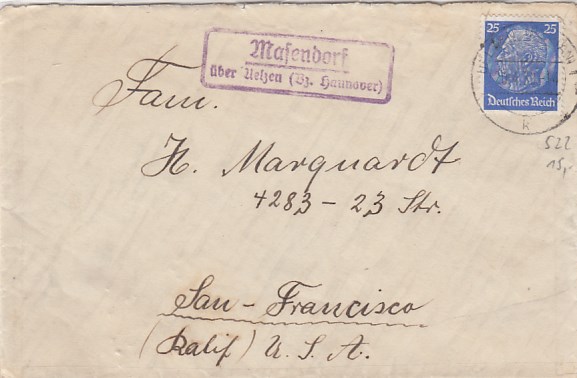 Masendorf
über Uelzen (Bz. Hannover)
25 25
Deutsches Reich
k
Fam.
H. Marquardt
4283 - 23 Str.
San - Francisco
(Kalif) U. S. A.
522
15,-